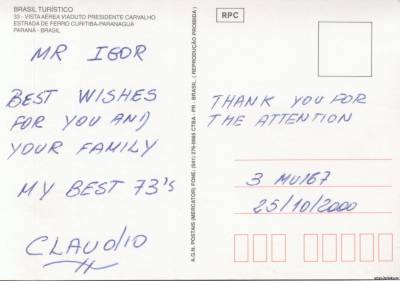 BRASIL TURÍSTICO
33 - VISTA AÉREA VIADUTO PRESIDENTE CARVALHO
ESTRADA DE FERRO CURITIBA-PARANAGUÁ
PARANÁ - BRASIL
MR IGOR
BEST WISHES
FOR YOU AND
YOUR FAMILY
MY BEST 73's
CLAUDIO
A.G.H. POSTAIS (MERCATOR) FONE: (041) 276-8865 CTBA - PR - BRASIL. ( REPRODUÇÃO PROIBIDA )
RPC
THANK YOU FOR
THE ATTENTION
3 MU167
25/10/2000